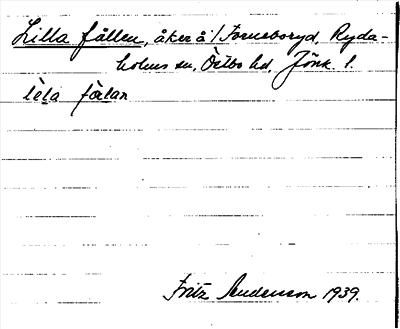 Lilla fållen, åker å/Torneboryd, Ryda-
holms sn, Östbo hd, Jönk. l.
lela fælan
Fritz Andersson 1939.